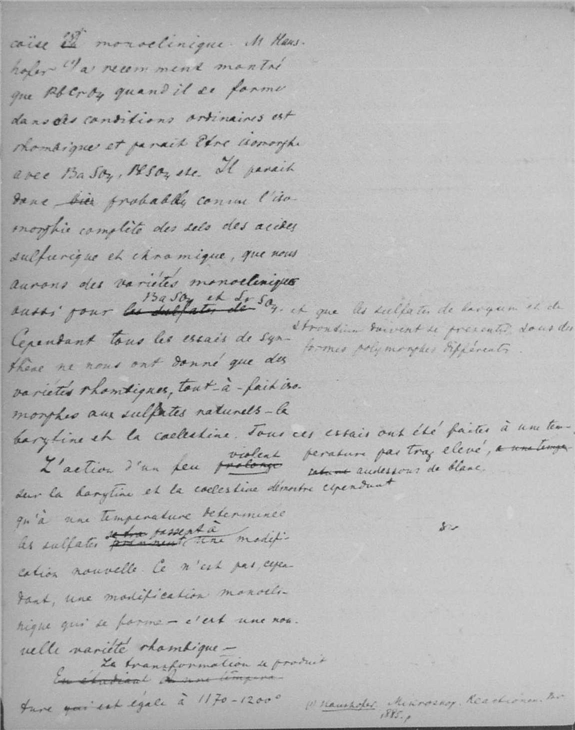 coïse est monoclinique. M Haus-
hofer (1) a recemment montré
que PbCrO4 quand il se forme
dans des conditions ordinaires est
rhombique et parait être isomorphe
avec BaSO4, PbSO4 etc. Il parait
donc bien probable, connu l'iso-
morphie complète des sels des acides
sulfurique et chromique, que nous
aurons des variétés monocliniques
BaSO4 et SrSO4.
aussi pour les sulfates de
et que les sulfates de baryum et de
strontium doivent se presenter sous des
formes polymorphes differentes.
Cependant tous les essais de syn-
thèse ne nous ont donné que des
varietés rhombiques, tout-à-fait iso-
morphes aux sulfates naturels - la
barytine et la coelestine. Tous ces essais ont été faites à une tem-
perature pas trop elevé, a une tempe
rature audessous de blanc.
violent
L'action d'un feu prolongé
sur la barytine et la coelestine démontre cependant
qu'à une temperature determinée
passent à
les sulfates une modifi-
cation nouvelle. Ce n'est pas, cepen-
dant, une modification monocli-
nique qui se forme - c'est une nou-
velle variété rhombique -
La transformation se produit
En étudiant a une tempera-
ture qui est égale à 1170-1200°
(1) Haushofer. Microscop. Reactionen.
1885.